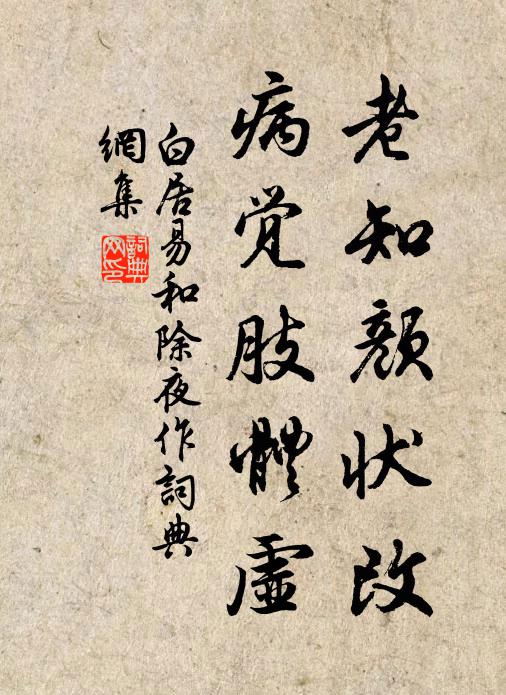 老知顏狀改
病觉肢體虛
白居易和除夜作詞典
網集
詞典
网印